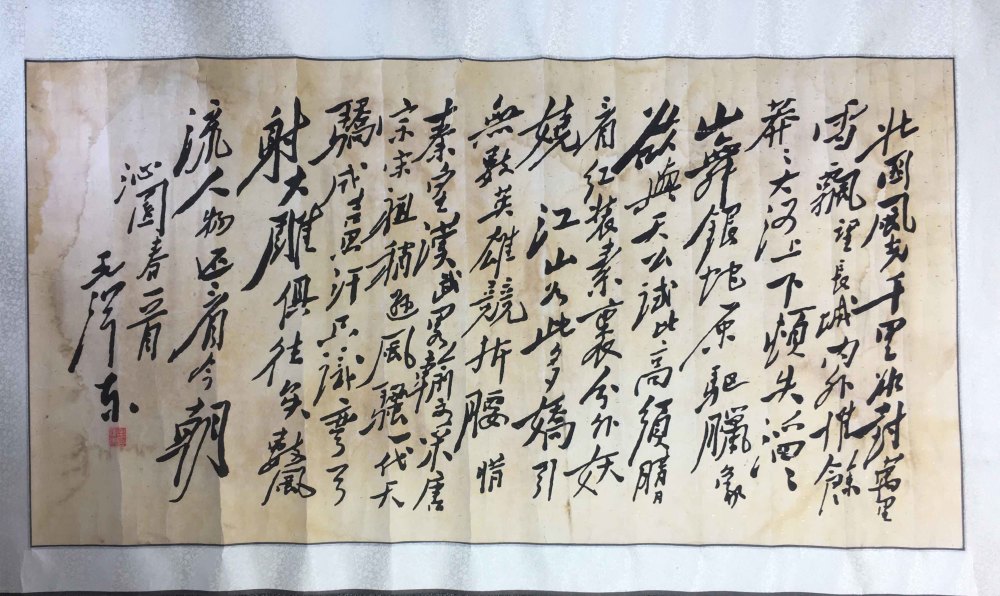 北国風光千里冰封萬里
雪飘望長城内外惟餘
莽〻大河上下頓失滔〻
山舞銀蛇原馳臘象
欲與天公試比高須晴日
看红装素裹分外妖
嬈 江山如此多嬌引
無數英雄競折腰 惜
秦皇漢武畧輸文采唐
宗宋祖稍遜風騷一代天
驕成吉思汗只識彎弓
射大雕俱往矣數風
流人物还看今朝
沁園春一首
毛澤东